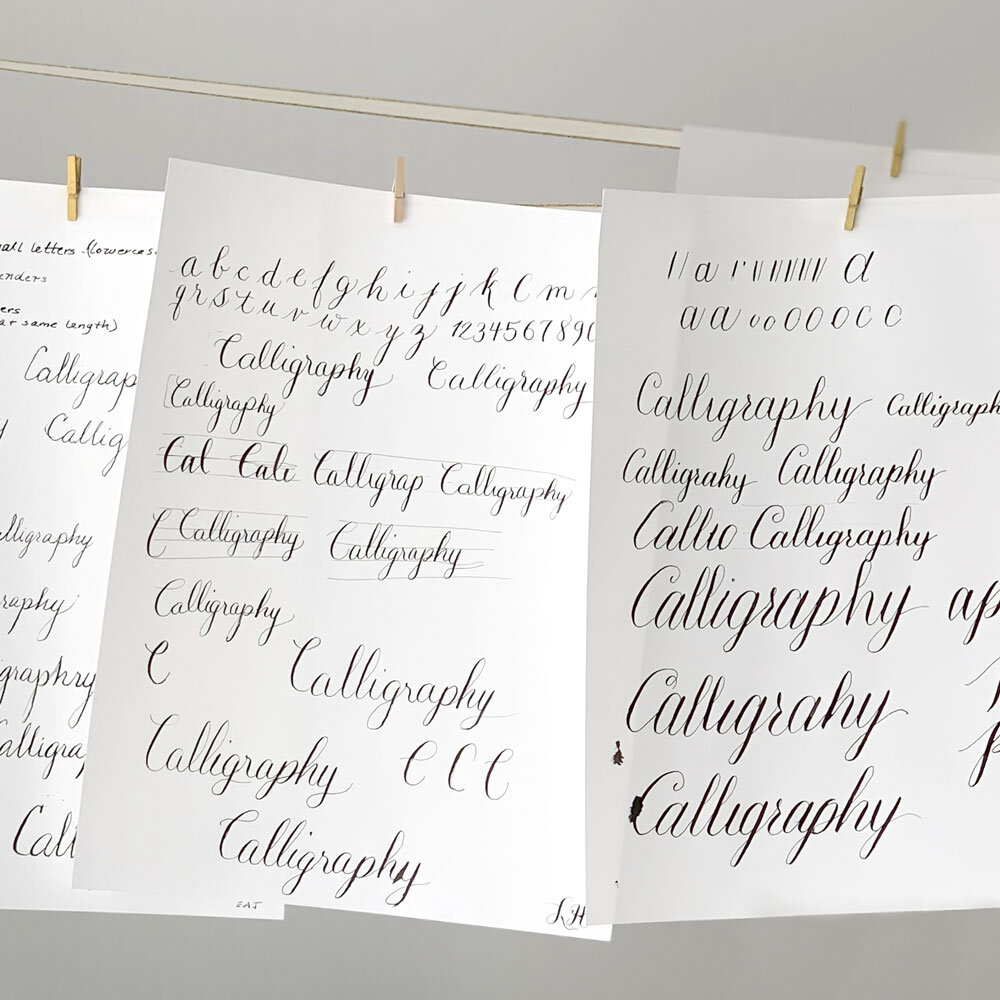 all letters (lowercas
enders
ers
ar same length)
Calligrap
Callig
alligraphy
raphy
graphry
alligra
Call
EAJ
a b c d e f g h i j j k l m
q r s t u v w x y z 1234567890
Calligraphy Calligraphy
Calligraphy
Cal Cali Calligrap Calligraphy
C Calligraphy Calligraphy
Calligraphy
C Calligraphy
Calligraphy C C C
Calligraphy
LH
a r d
a a o o O O O C C
Calligraphy Calligraph
Calligrahy Calligraphy
Callio Calligraphy
Calligraphy ap
Calligrahy
p
Calligraphy